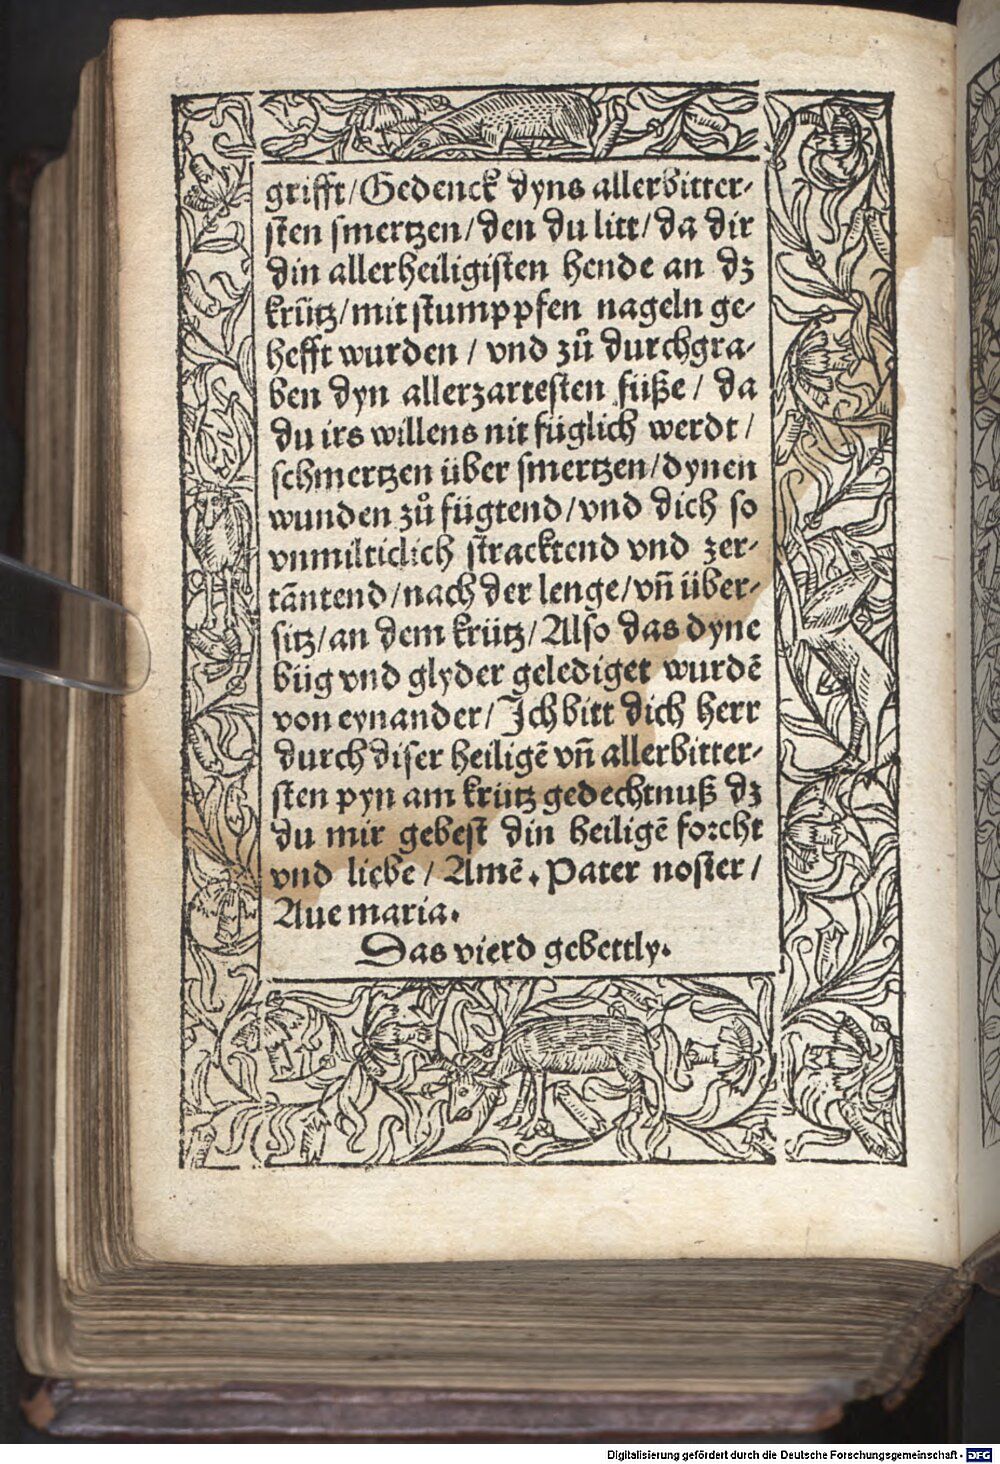 grifft/Gedenck dyns allerbitter-
sten smertzen/den du litt/da dir
din allerheiligisten hende an dz
krütz/mit stumppfen nageln ge-
hefft wurden / vnd zů durchgra-
ben dyn allerzartesten füße / da
du irs willens nit füglich werdt /
schmertzen über smertzen/dynen
wunden zů fügtend/vnd dich so
vnmilticlich stracktend vnd zer-
tãntend/nach der lenge/vñ über-
sitz/an dem krütz/Also das dyne
büg vnd glyder gelediget wurdẽ
von eynander/Ich bitt dich herr
durch diser heiligẽ vñ allerbitter-
sten pyn am krütz gedechtnuß dz
du mir gebest din heiligẽ forcht
vnd liebe / Amẽ. Pater noster /
Aue maria.
Das vierd gebettly.
Digitalisierung gefördert durch die Deutsche Forschungsgemeinschaft - DFG